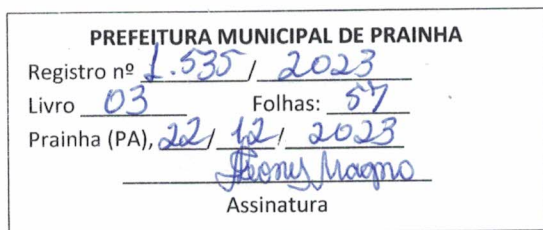 PREFEITURA MUNICIPAL DE PRAINHA
Registro nº 1.535 / 2023
Livro 03 Folhas: 57
Prainha (PA), 22 / 12 / 2023
Magno
Assinatura